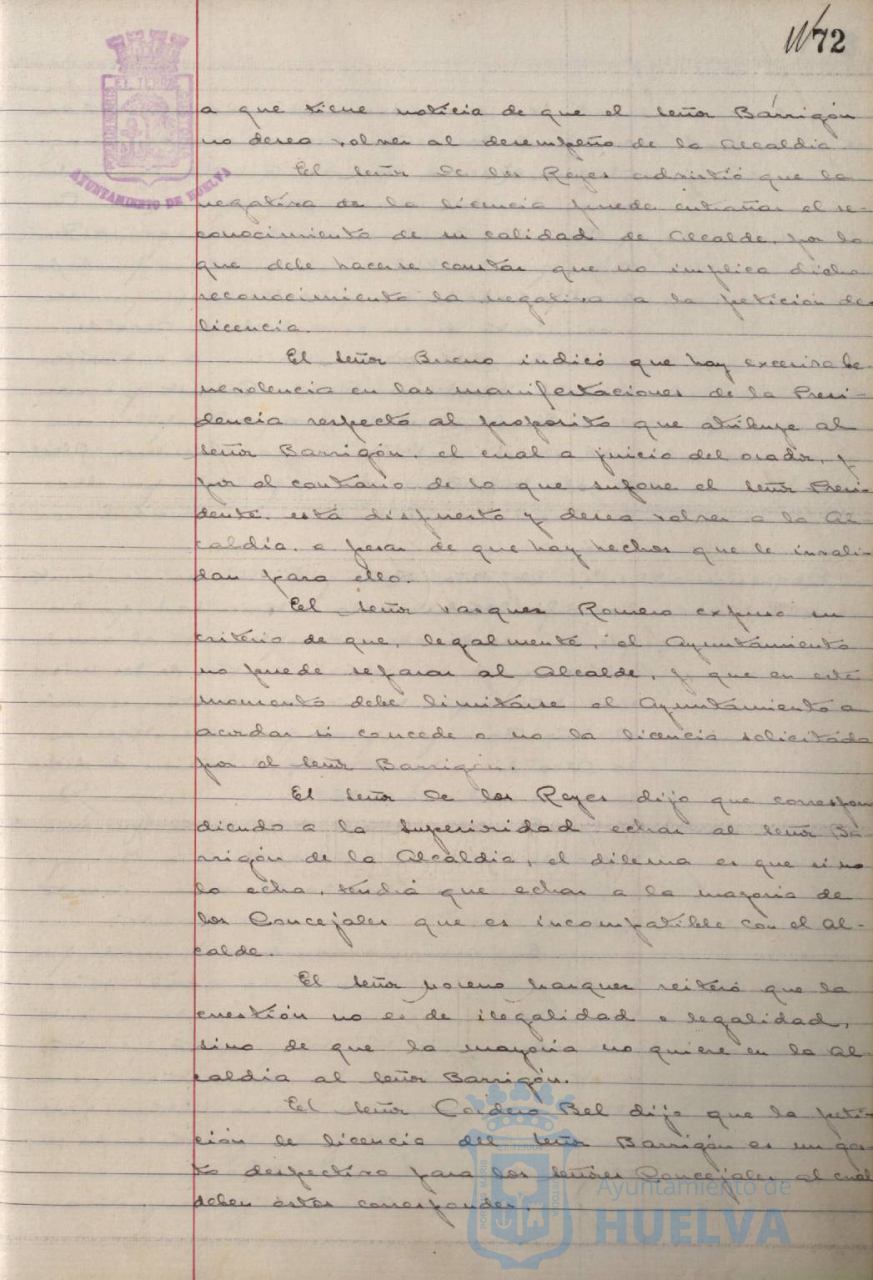 72
EL TERRÆ
AYUNTAMIENTO DE HUELVA
a que tiene noticia de que el señor Barrigón
no desea volver al desempeño de la Alcaldia.
El señor de los Reyes advirtió que la
negativa de la licencia puede entrañar el re-
conocimiento de su calidad de Alcalde, por lo
que debe hacerse constar que no implica dicho
reconocimiento la negativa a la petición de
licencia.
El señor Bueno indicó que hay excesiva be-
nevolencia en las manifestaciones de la Presi-
dencia respecto al proposito que atribuye al
señor Barrigón, el cual a juicio del orador, y
por el contrario de lo que supone el señor Presi-
dente, está dispuesto y desea volver a la Al
caldia, a pesar de que hay hechos que le invali-
dan para ello.
El señor Vazquez Romero expuso su
criterio de que, legalmente, el Ayuntamiento
no puede separar al Alcalde, y que en este
momento debe limitarse el Ayuntamiento a
acordar si concede o no la licencia solicitada
por el señor Barrigón.
El señor de los Reyes dijo que correspon
diendo a la Superioridad echar al señor Ba-
rrigón de la Alcaldia, el dilema es que si no
lo echa, tendrá que echar a la mayoria de
los Concejales que es incompatible con el Al-
calde.
El señor Moreno Marquez reiteró que la
cuestión no es de ilegalidad o legalidad,
sino de que la mayoria no quiere en la Al
caldia al señor Barrigón.
El señor Cordero Bel dijo que la peti-
ción de licencia del señor Barrigón es un ges-
to despectivo para los señores Concejales al cual
deben éstos corresponder.
Ayuntamiento de
HUELVA